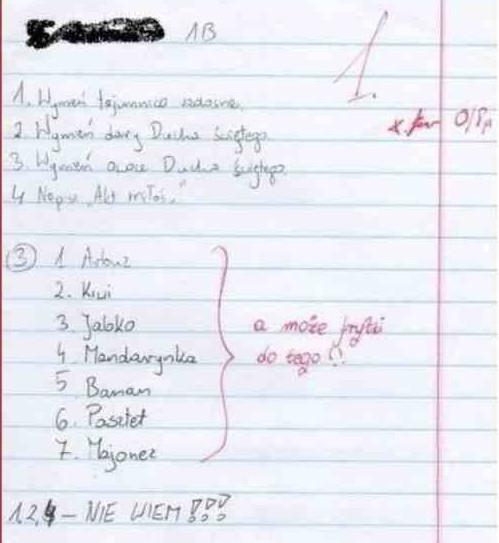 1B
1.
1. Wymień tajemnice radosne.
2. Wymień dary Ducha Świętego.
3. Wymień owoce Ducha Świętego
4. Napisz "Akt miłości"
0/8p
③ 1 Arbuz
2. Kiwi
3. Jabłko
4. Mandarynka
5 Banan
6. Pasztet
7. Majonez
a może frytki
do tego?!
1,2,4 - NIE WIEM!!!